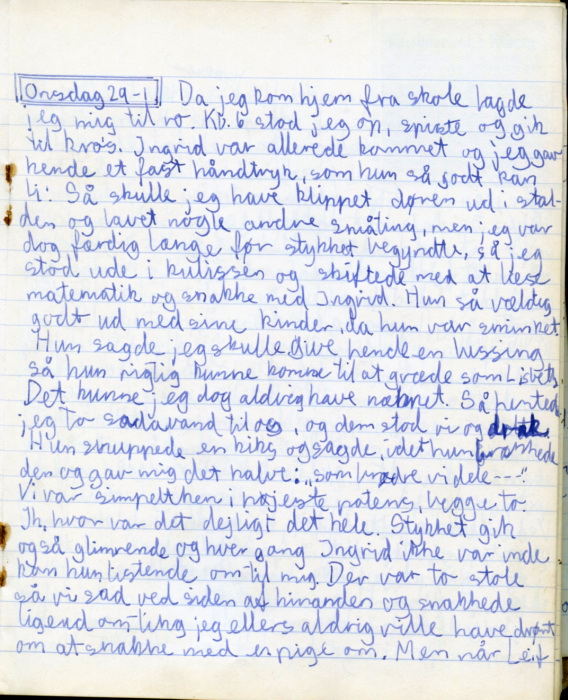 Onsdag 29-1 Da jeg kom hjem fra skole lagde
jeg mig til ro. Kl. 6 stod jeg op, spiste og gik
til kro's. Ingrid var allerede kommet og jeg gav
hende et fast håndtryk, som hun så godt kan
li! Så skulle jeg have klippet døren ud i stal-
den og lavet nogle andre småting, men jeg var
dog færdig længe før stykket begyndte, så jeg
stod ude i kulissen og skiftede med at læse
matematik og snakke med Ingrid. Hun så vældig
godt ud med sine kinder, da hun var sminket.
Hun sagde jeg skulle give hende en lussing
så hun rigtig kunne komme til at græde som Lisbeth.
Det kunne jeg dog aldrig have nænnet. Så hentede
jeg to sodavand til os, og dem stod vi og drak
Hun snuppede en kiks og sagde, idet hun brækkede
den og gav mig det halve: "som brødre vi dele---"
Vi var simpelthen i højeste potens, begge to.
Ih, hvor var det dejligt det hele. Stykket gik
også glimrende og hver gang Ingrid ikke var inde
kom hun listende om til mig. Der var to stole
så vi sad ved siden af hinanden og snakkede
ligend om ting jeg ellers aldrig ville have drømt
om at snakke med en pige om. Men når Leif